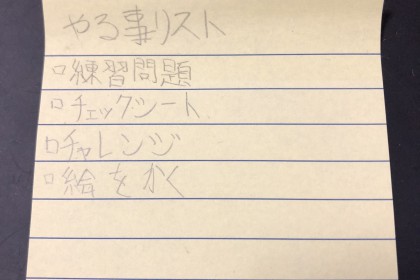 やる事リスト
□練習問題
□チェックシート
□チャレンジ
□絵をかく